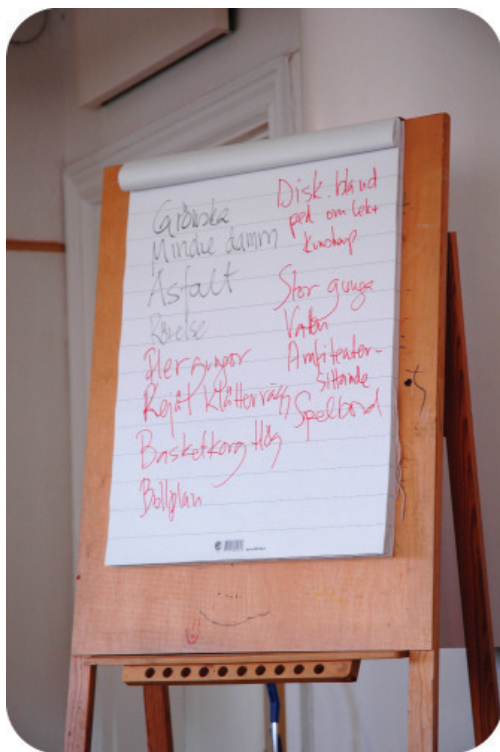 Grönska
Mindre damm
Asfalt
Rörelse
Fler gungor
Rejäl Klättervägg
Basketkorg Hög
Bollplan
Disk. bland
ped om lek+
kunskap
Stor gunga
Vatten
Amfiteater-
sittande
Spelbord